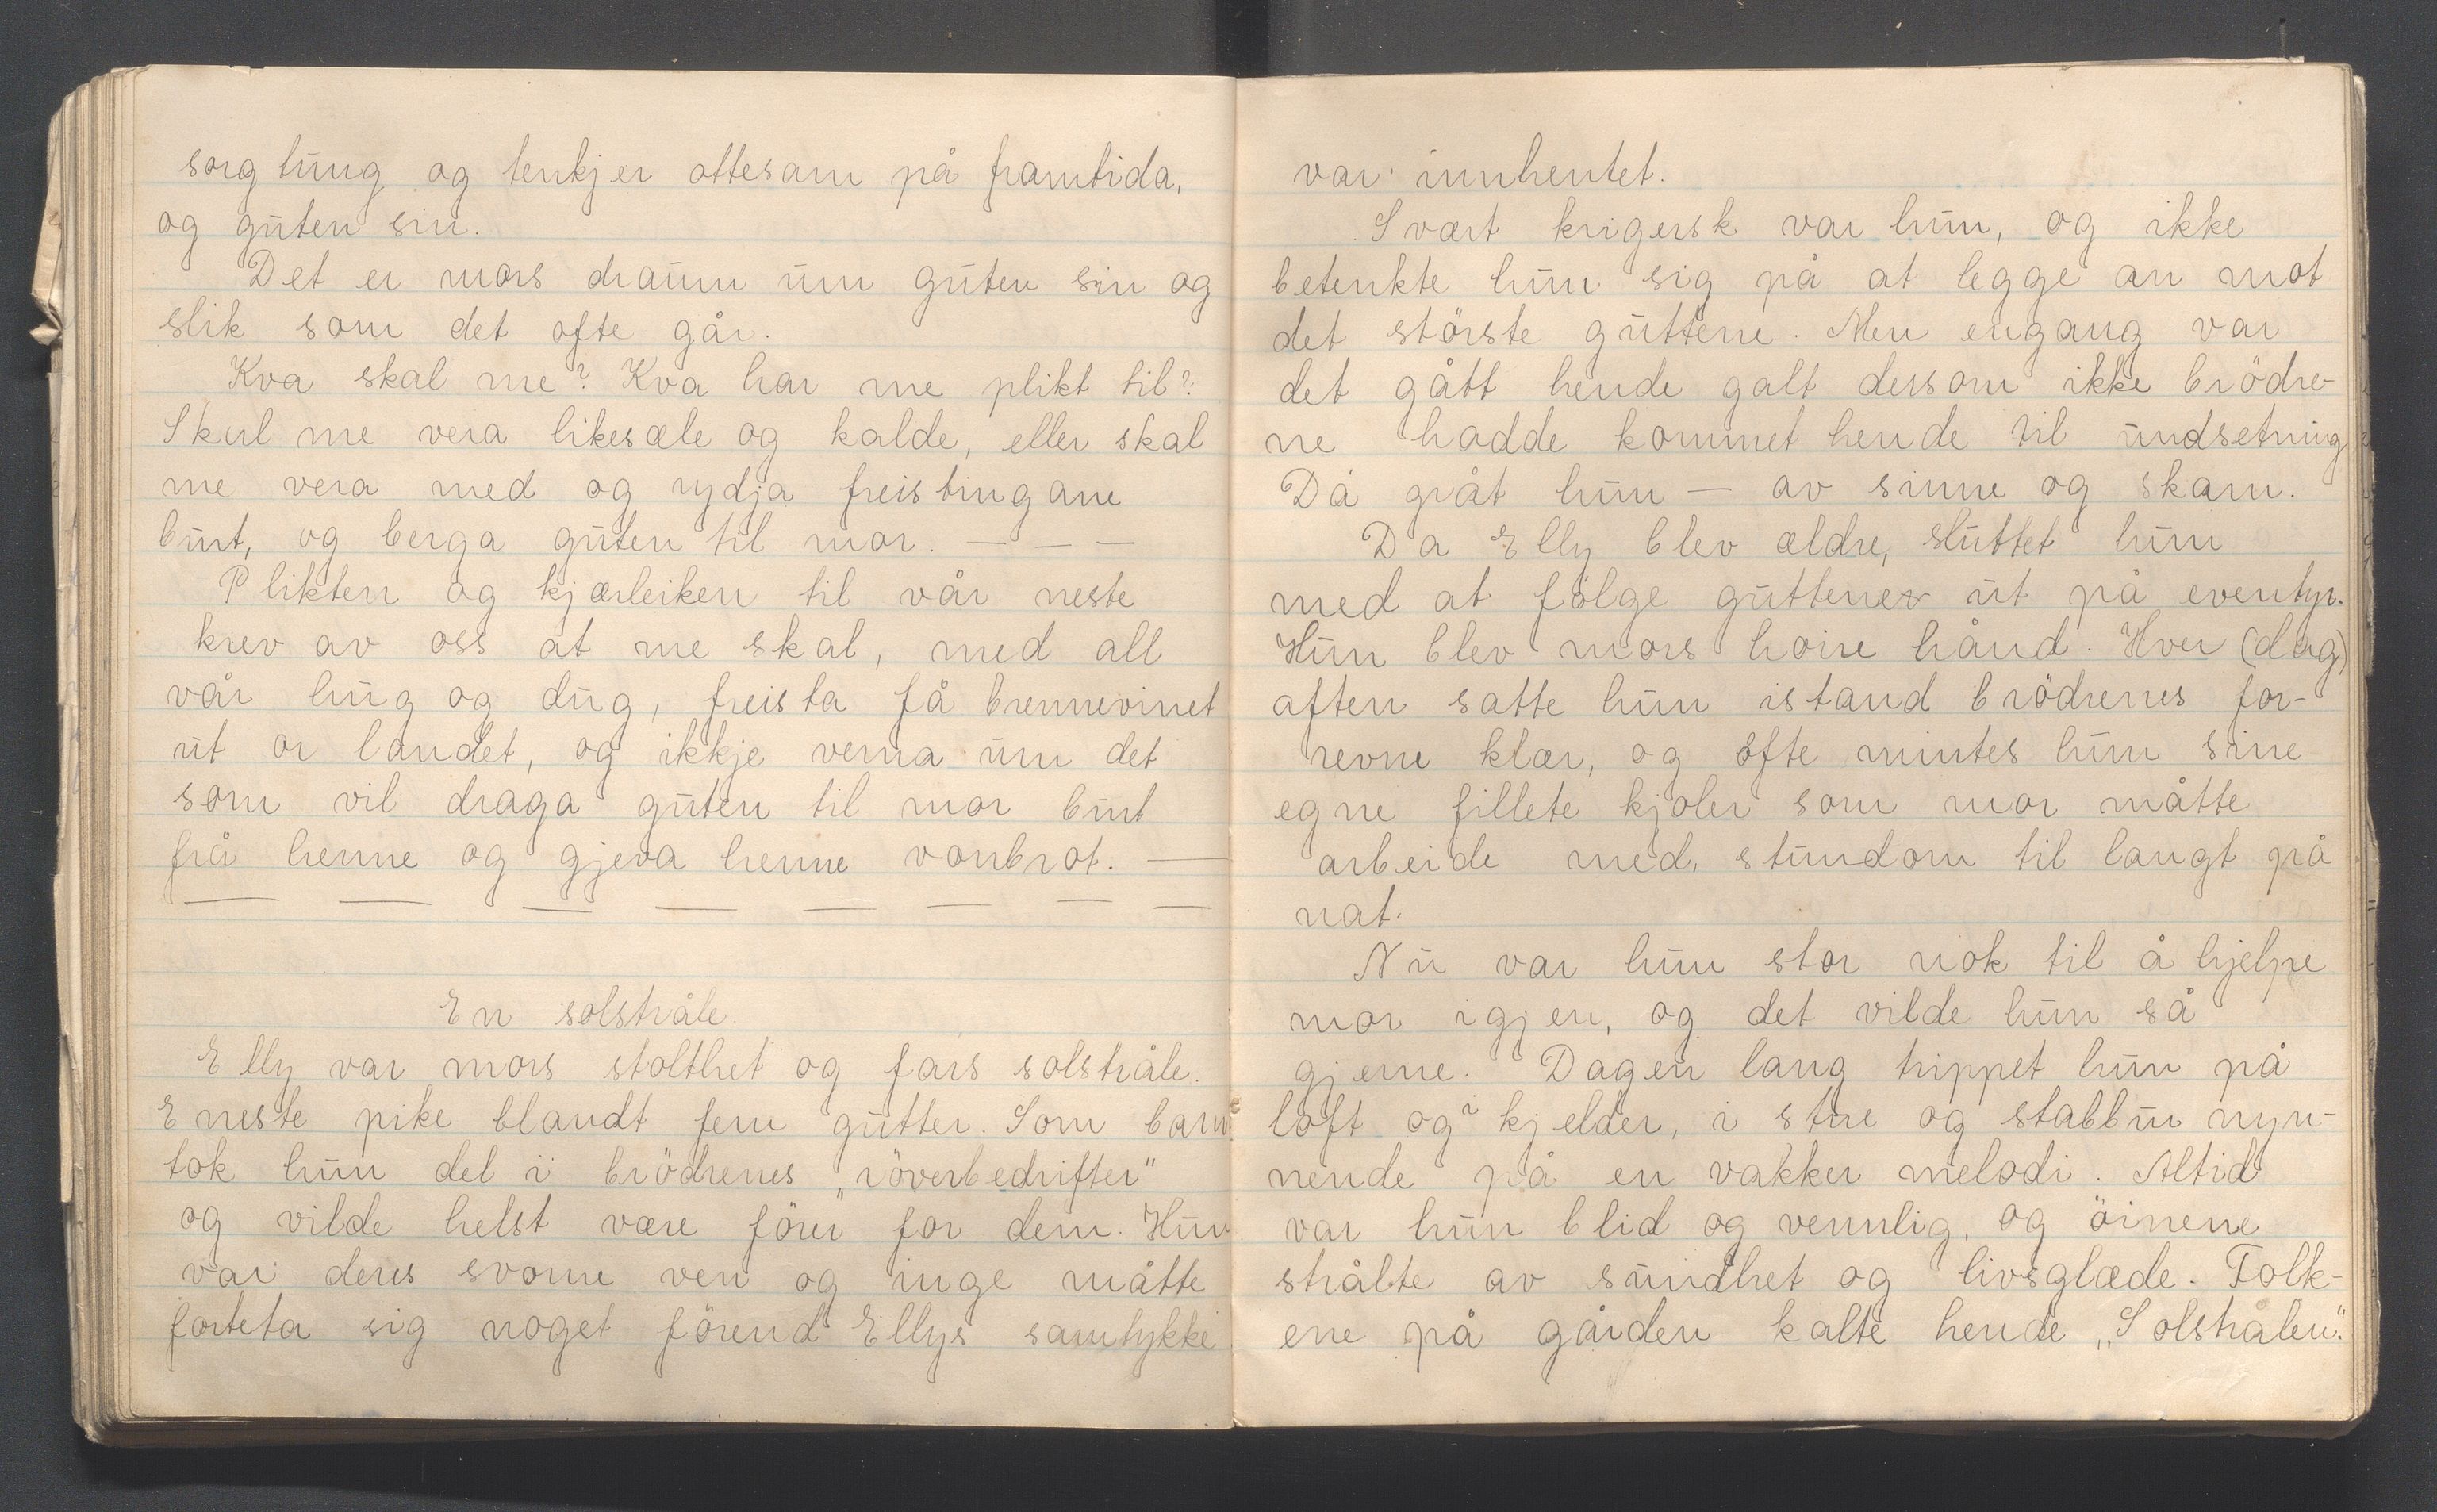 sorgtung og tenkjer ottesam på framtida,
og guten sin.
Det er mors draum um guten sin og
slik som det ofte går.
Kva skal me? Kva har me plikt til?
Skul me vera likesæle og kalde, eller skal
me vera med og rydja freistingane
burt, og berga guten til mor. — — —
Plikten og kjærleiken til vår neste
krev av oss at me skal, med all
vår hug og dug, freista få brennevinet
ut or landet, og ikkje verna um det
som vil draga guten til mor burt
frå henne og gjeva henne vonbrot. —
— — — — — — — —
En solstråle.
Elly var mors stolthet og fars solstråle.
Eneste pike blandt fem gutter. Som barn
tok hun del i brödrenes „röverbedrifter"
og vilde helst være förer for dem. Hun
var deres svorne ven og inge måtte
forteta sig noget förend Ellys samtykke
var innhentet.
Svært krigersk var hun, og ikke
betenkte hun sig på at legge an mot
det störste guttene. Men engang var
det gått hende galt dersom ikke brödre-
ne hadde kommet hende til undsetning
Då gråt hun — av sinne og skam.
Da Elly blev ældre, sluttet hun
med at fölge guttener ut på eventyr.
Hun blev mors hoire hånd. Hver (dag)
aften satte hun istand brödrenes for-
revne klær, og ofte mintes hun sine
egne fillete kjoler som mor måtte
arbeide med, stundom til langt på
nat.
Nu var hun stor nok til å hjelpe
mor igjen, og det vilde hun så
gjerne. Dagen lang trippet hun på
loft og i kjelder, i stue og stabbur nyn-
nende på en vakker melodi. Altid
var hun blid og vennlig, og öinene
strålte av sundhet og livsglæde. Folk-
ene på gården kalte hende „Solstrålen".